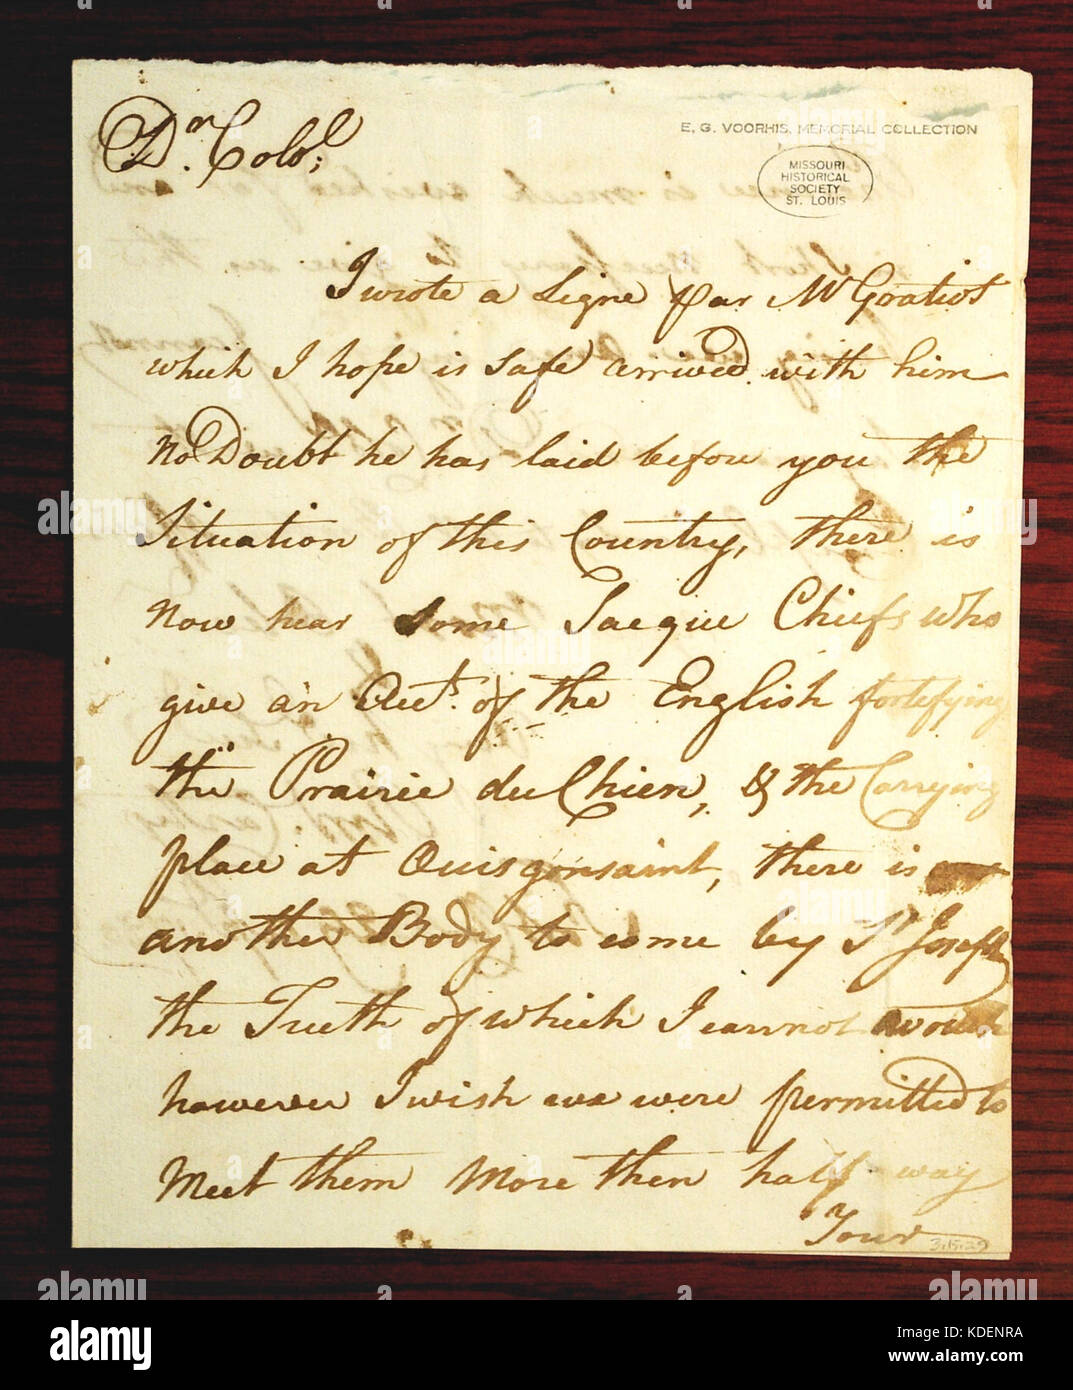 Dr. Colol;
E. G. VOORHIS, MEMORIAL COLLECTION
MISSOURI
HISTORICAL
SOCIETY
ST. LOUIS
I wrote a Ligne par Mr Gratiot
which I hope is Safe arrived with him
no Doubt he has laid before you the
Situation of this Country, there is
now hear Some Saeque Chiefs who
give an Acct. of the English fortefying
the Prairie du Chien, & the Carrying
place at Ouisgonsaint, there is
another Body to come by St Joseph
the Trueth of which I cannot avouch
however I wish we were permitted to
Meet them More then half way
Your
3.15.29
alamy stock photo
KDENRA
www.alamy.com